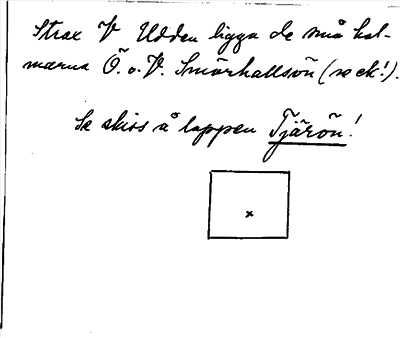 Strax V Udden ligga de små hol-
marna Ö. o. V. Smörhallsön (ck!).
Se skiss å lappen Tjärön!
x